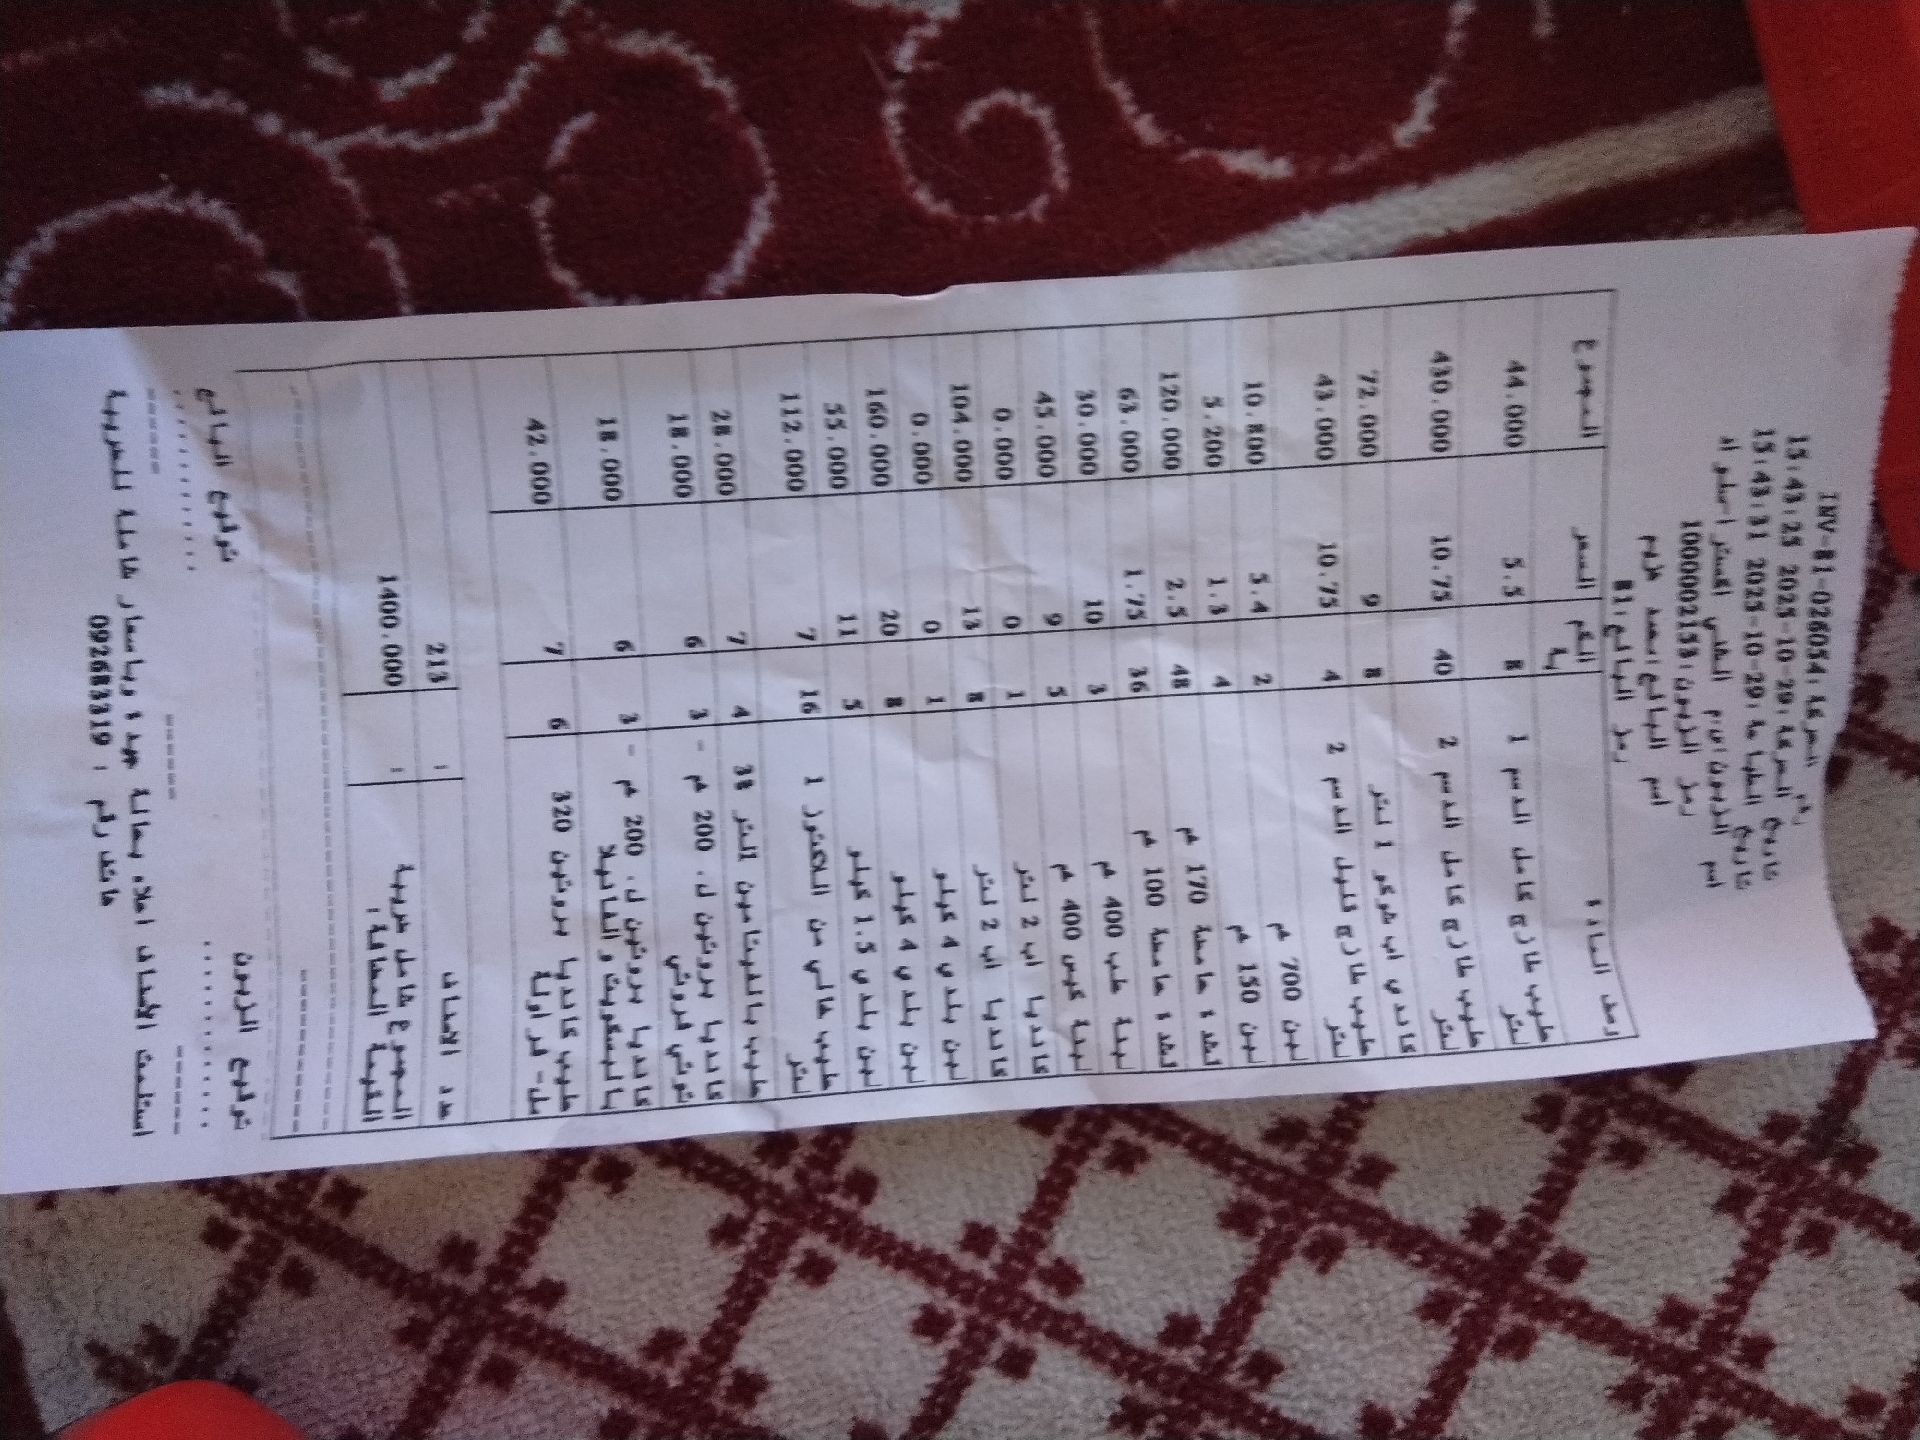 INV-81-026054: رقم الحركة
15:43:25 2025-10-29: تاريخ الحركة
15:43:31 2025-10-29: تاريخ الطباعة
اسم الزبون: م
1000002153: رمز الزبون
اسم البائع: احمد
81: رمز البائع
وصف المادة الكمية السعر المجموع
حليب طازج كامل الدسم 1 لتر 8 5.5 44.000
حليب طازج كامل الدسم 2 لتر 40 10.75 430.000
كاندي اب شوكو 1 لتر 8 9 72.000
حليب طازج قليل الدسم 2 لتر 4 10.75 43.000
لبن 700 غم 2 5.4 10.800
لبن 150 غم 4 1.3 5.200
قشدة حامضة 170 غم 48 2.5 120.000
قشدة حامضة 100 غم 36 1.75 63.000
لبنة علب 400 غم 3 10 30.000
لبنة كيس 400 غم 5 9 45.000
كانديا اب 2 لتر 1 0 0.000
كانديا اب 2 لتر 8 13 104.000
لبن بلدي 4 كيلو 1 0 0.000
لبن بلدي 4 كيلو 8 20 160.000
لبن بلدي 1.5 كيلو 5 11 55.000
حليب خالي من اللاكتوز 1 لتر 16 7 112.000
حليب بالفيتامين 1لتر 38 4 7 28.000
كانديا بروتين ل. 200 غم - توتي فروتي 3 6 18.000
كانديا بروتين ل. 200 غم - بالبسكويت والفانيلا 3 6 18.000
حليب كانديا بروتين 320 مل- فراولة 6 7 42.000
عدد الاصناف : 213
المجموع شامل ضريبة القيمة المضافة: : 1400.000
توقيع الزبون توقيع البائع
استلمت الأصناف اعلاه بحالة جيدة وباسعار شاملة للضريبة
هاتف رقم : 092683319